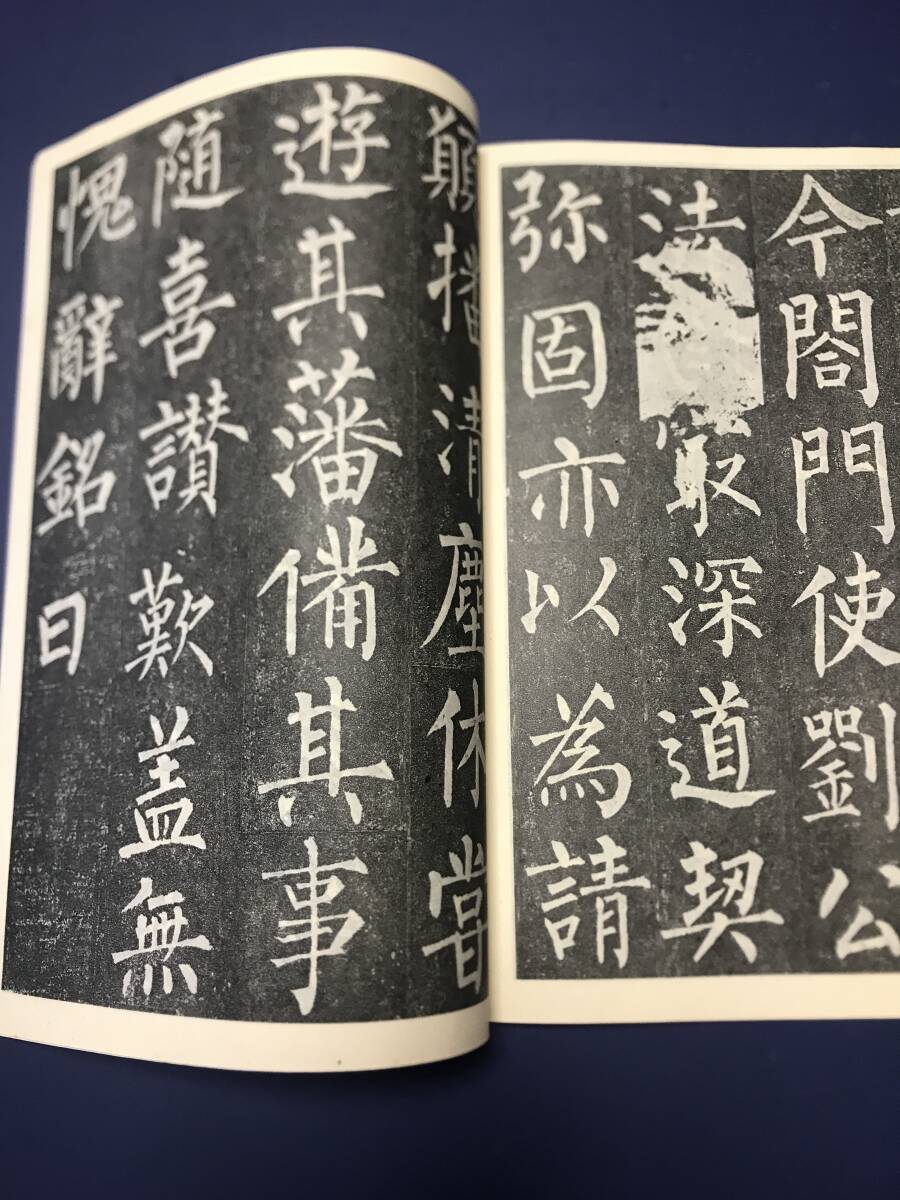 今閤門使劉公
法冣深道契
弥固亦以為請
願播清塵休嘗
遊其藩備其事
隨喜讃歎盖無
愧辭銘曰